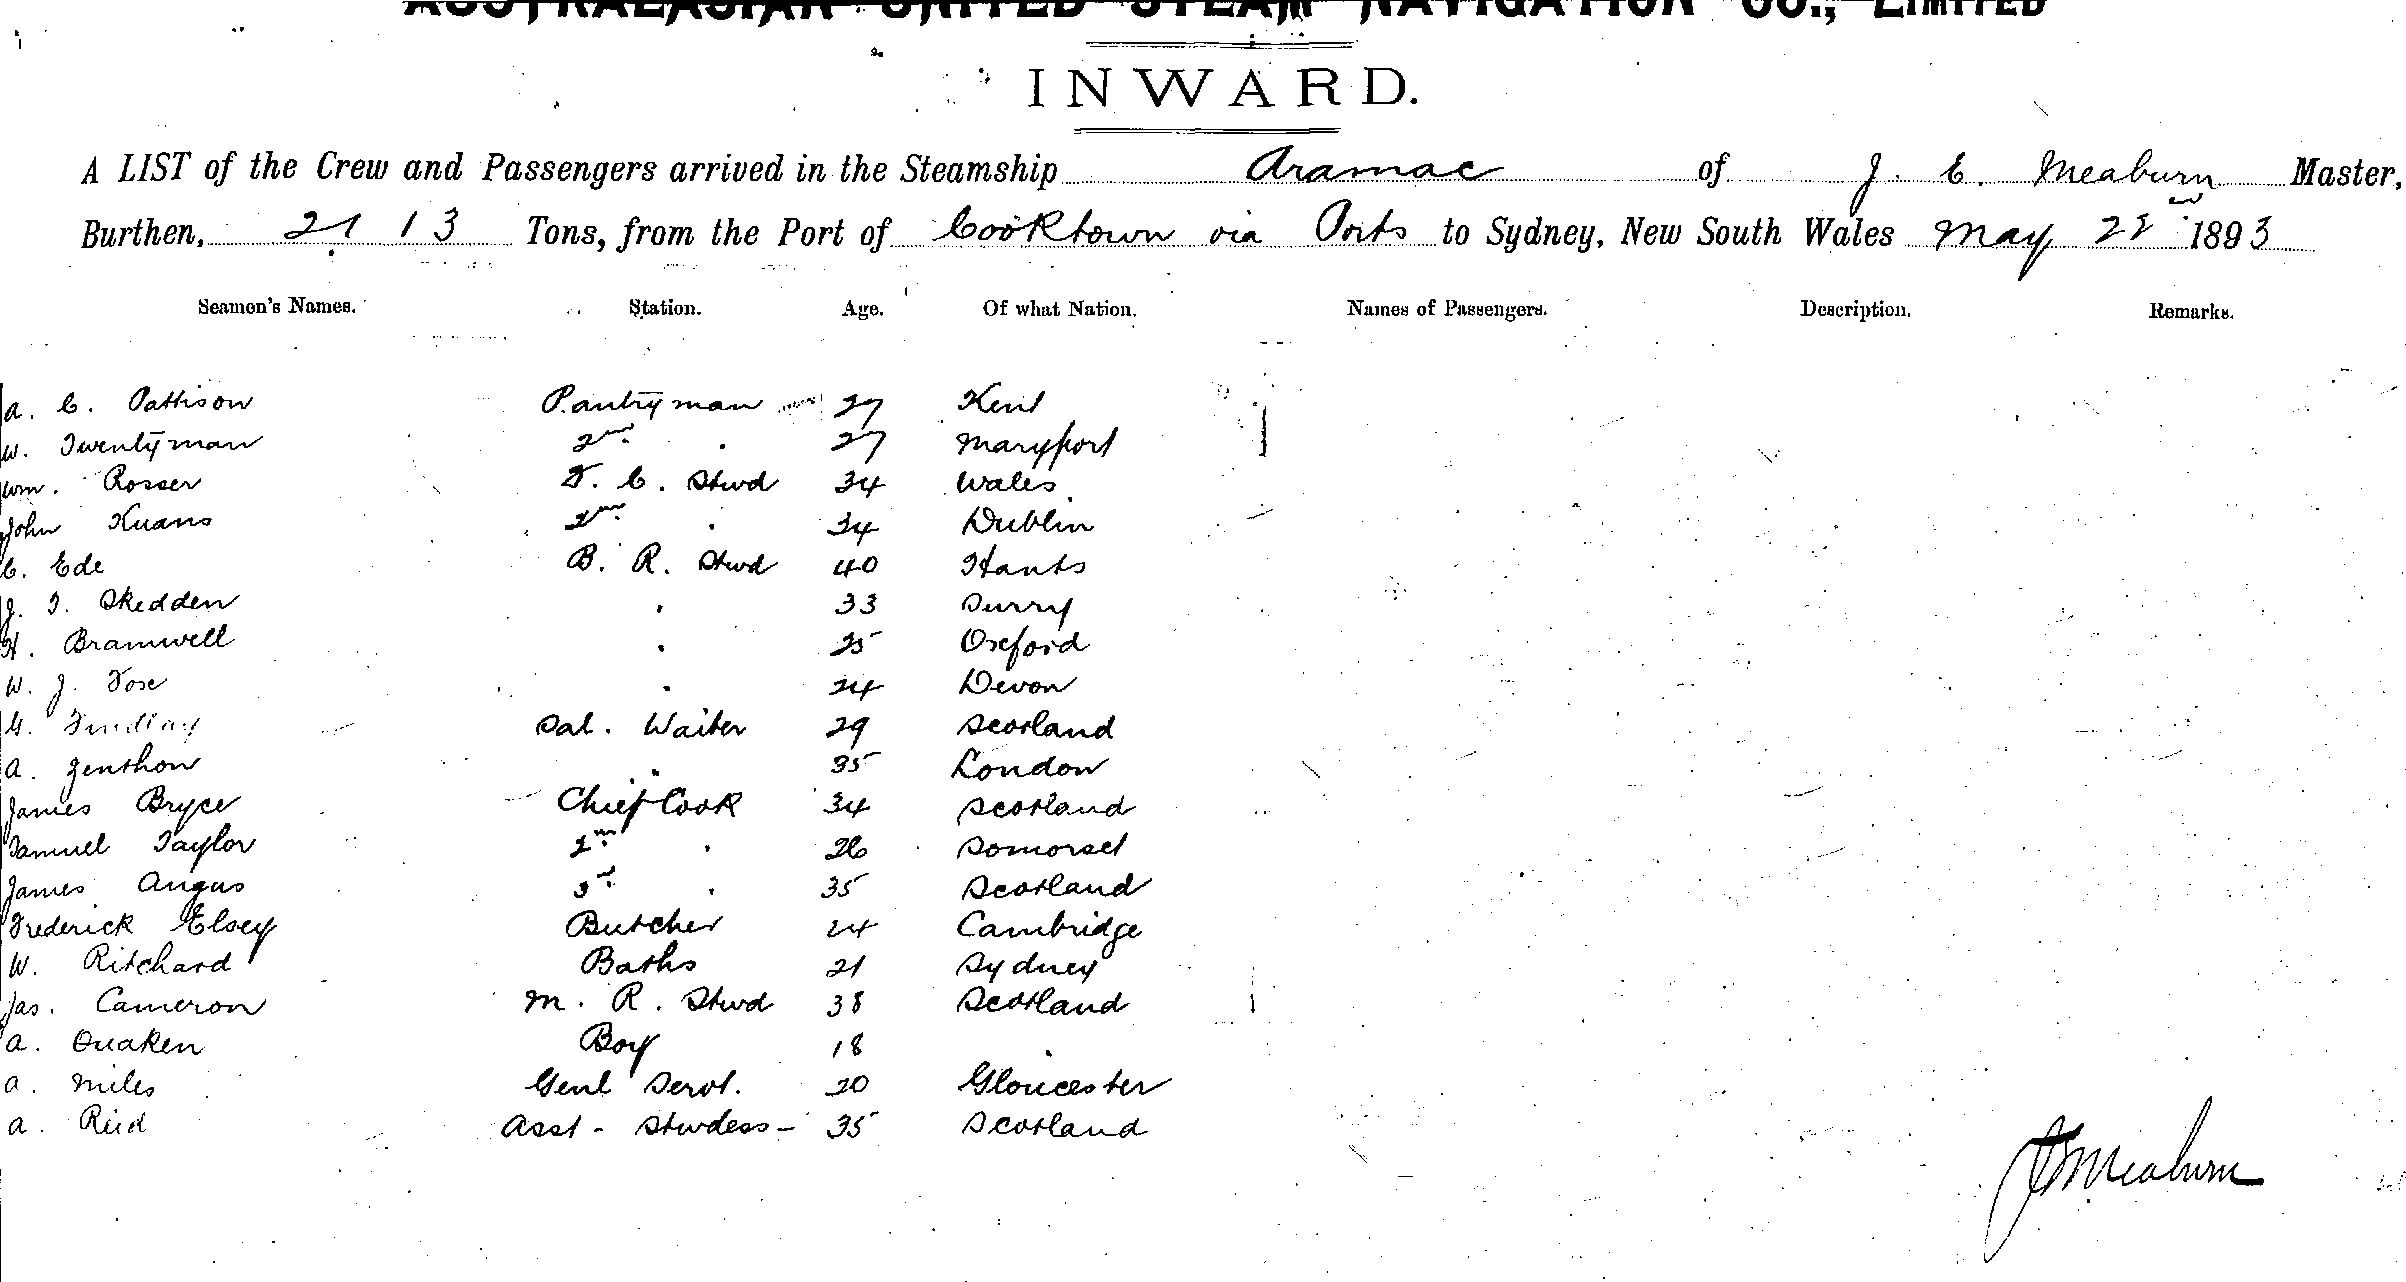 AUSTRALASIAN UNITED STEAM NAVIGATION CO., LIMITED
INWARD.
A LIST of the Crew and Passengers arrived in the Steamship Aramac of J. E. Meaburn Master,
Burthen, 2113 Tons, from the Port of Cooktown via Ports to Sydney, New South Wales May 22nd 1893
Seamen's Names. Station. Age. Of what Nation. Names of Passengers. Description. Remarks.
A. C. Pattison Pantryman 27 Kent
W. Twentyman 2nd " 27 Maryport
Wm. Rosser F. C. Stwd 34 Wales
John 2nd " 34 Dublin
C. Ede B. R. Stwd 40 Hants
J. T. Skedden " 33 Surry
H. Bramwell " 25 Oxford
W. J. " 24 Devon
G. Findlay Sal. Waiter 29 Scotland
A. " 35 London
James Bryce Chief Cook 34 Scotland
Samuel Taylor 2nd " 26 Somerset
James Angus 3rd " 35 Scotland
Frederick Elsey Butcher 24 Cambridge
W. Ritchard Baths 21 Sydney
Jas. Cameron M. R. Stwd 38 Scotland
A. Boy 18
A. Miles Genl Servt. 20 Gloucester
A. Reid Asst - Stwdess - 35 Scotland
J E Meaburn